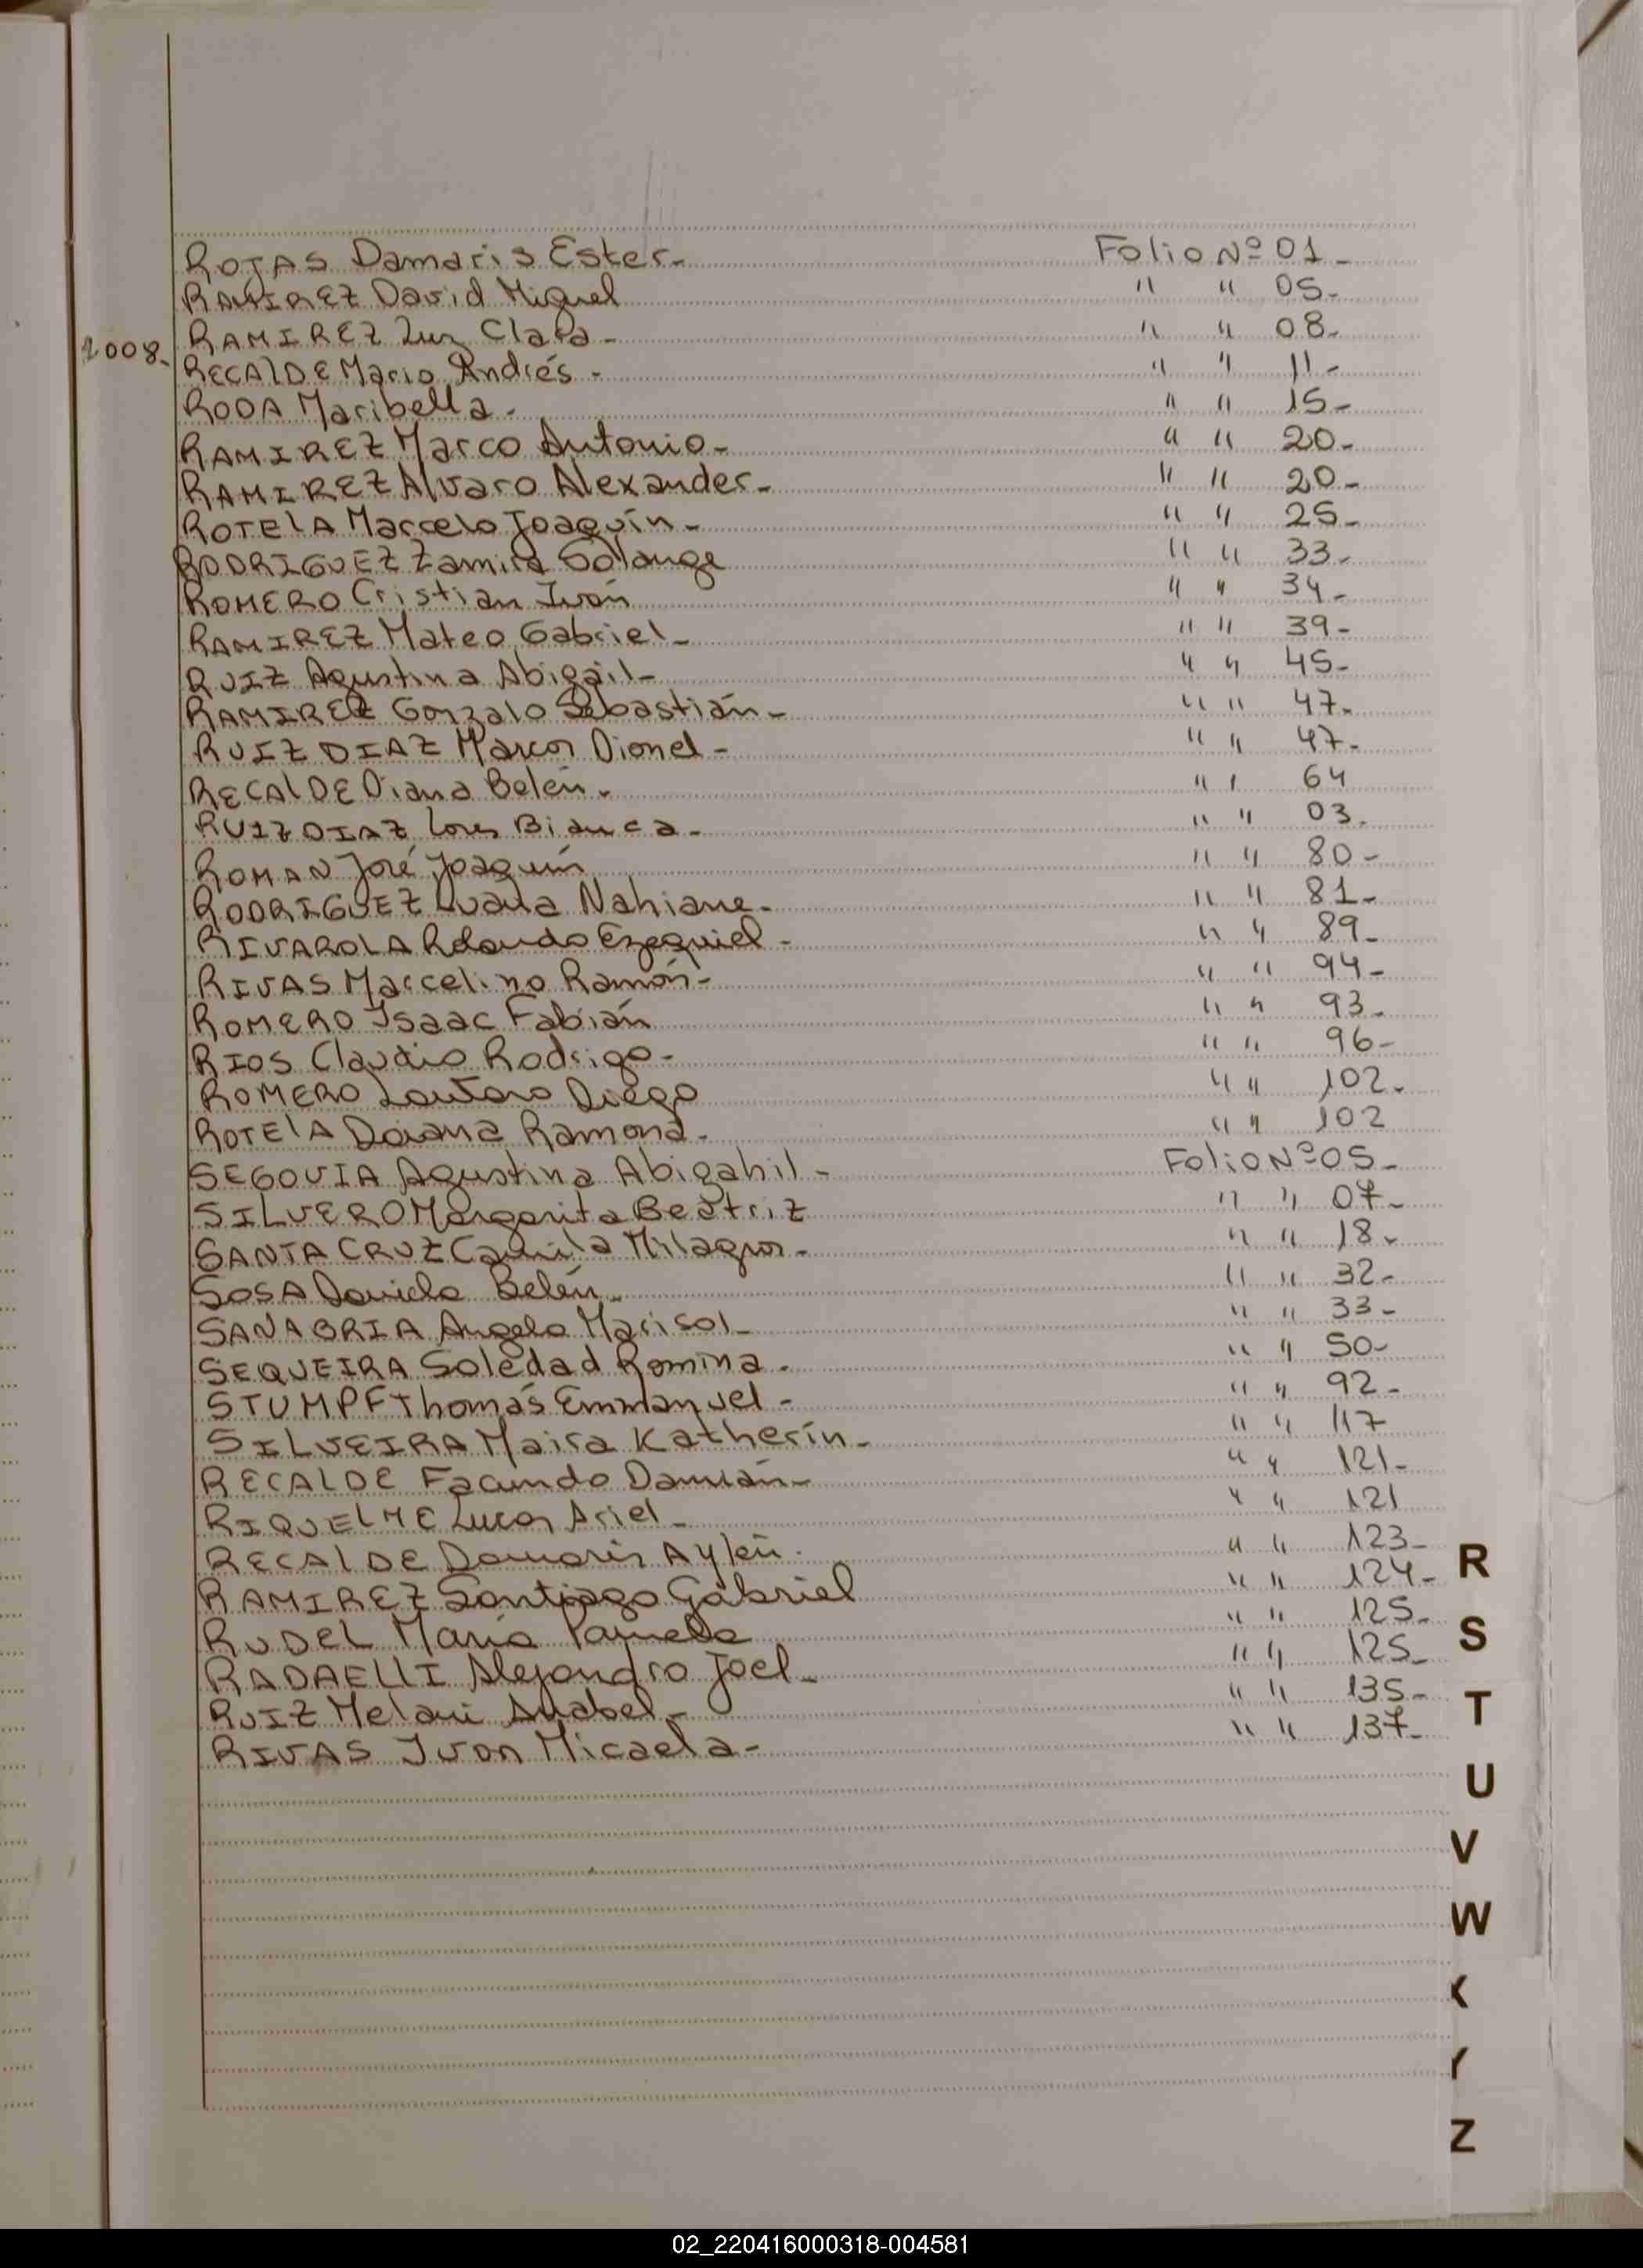 ROJAS Damaris Ester- Folio Nº 01-
RAMIREZ David Miguel " " 05-
RAMIREZ Luz Clara- " " 08-
2008-
RECALDE Mario Andrés- " " 11-
RODA Maribella- " " 15-
RAMIREZ Marco Antonio- " " 20-
RAMIREZ Alvaro Alexander- " " 20-
ROTELA Marcelo Joaquín- " " 25-
RODRIGUEZ Zamira Solange " " 33-
ROMERO Cristian Iván " " 34-
RAMIREZ Mateo Gabriel- " " 39-
RUIZ Agustina Abigail- " " 45-
RAMIREZ Gonzalo Sebastián- " " 47-
RUIZ DIAZ Marcos Dionel- " " 47-
RECALDE Diana Belén- " " 64
RUIZ DIAZ Bianca- " " 03-
ROMAN José Joaquín " " 80-
RODRIGUEZ Luana Nahiane- " " 81-
RIVAROLA Rolando Ezequiel- " " 89-
RIVAS Marcelino Ramón- " " 94-
ROMERO Isaac Fabián " " 93-
RIOS Claudio Rodrigo- " " 96-
ROMERO Lautaro Diego " " 102-
ROTELA Daiana Ramona- " " 102
SEGOVIA Agustina Abigahil- Folio Nº 05-
SILVERO Margarita Beatriz " " 07-
SANTA CRUZ Camila Milagros- " " 18-
SOSA Daniela Belén- " " 32-
SANABRIA Angela Marisol- " " 33-
SEQUEIRA Soledad Romina- " " 50-
STUMPF Thomás Emmanuel- " " 92-
SILVEIRA Maira Katherín- " " 117
RECALDE Facundo Damián- " " 121-
RIQUELME Lucas Ariel- " " 121
RECALDE Damaris Aylén- " " 123-
RAMIREZ Santiago Gabriel " " 124-
RUDEL María Pamela " " 125-
RADAELLI Alejandro Joel- " " 125-
RUIZ Melani Anabel- " " 135-
RIVAS Ivon Micaela- " " 137-
R
S
T
U
V
W
X
Y
Z
02_220416000318-004581